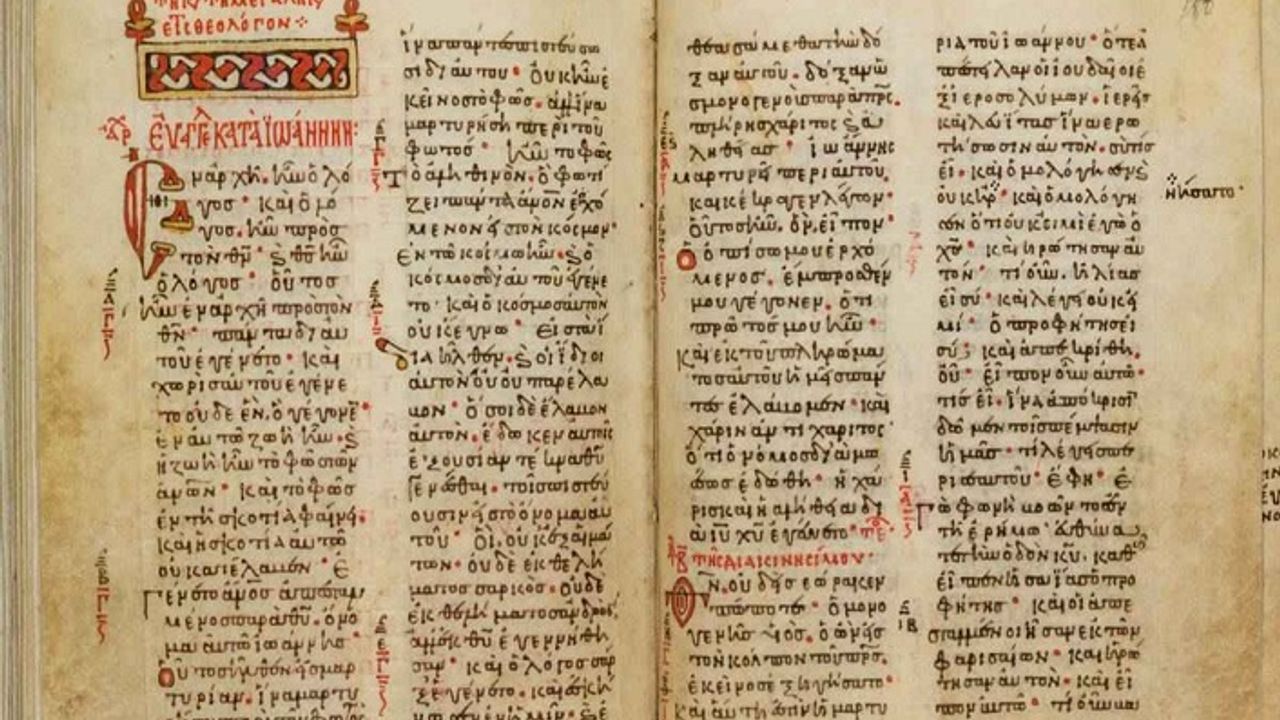 εἰς θεολόγον
ΕΥΑΓΓΕ ΚΑΤΑ ΙΩΑΝΝΗΝ:
Ἐν ἀρχῆ. ἦν ὁ λό
γος· καὶ ὁ λό
γος. ἦν πρὸς
τὸν θν· ϛ θς ἦν
ὁ λόγος· οὗτος
ἦν ἐν ἀρχῆ πρὸς τὸν
θν· πάντα δι αὐ
τοῦ ἐγένετο· καὶ
χωρὶς αὐτοῦ ἐγένε
το οὐδὲ ἕν. ὃ γέγονε·
ἐν αὐτῶ ζωὴ ἦν· ϛ
ἡ ζωὴ ἦν τὸ φῶς τῶν
ἀνων· καὶ τὸ φῶς
ἐν τῆ σκοτία φαίνει·
καὶ ἡ σκοτία αὐτὸ
οὐ κατέλαβεν· Ἐ
γένετο ἀνος ἀπεσταλ
μένος παρὰ θυ. ὄνο
μα αὐτῶ ἰωάννης·
οὗτος ἦλθεν εἰς μαρ
τυρίαν. ἵνα μαρτυ
ἵνα πάντες πιστεύσω
σι δι αὐτοῦ· Οὐκ ἦν ἐ
κεῖνος τὸ φῶς. ἀλλ ἵνα
μαρτυρήση περὶ τοῦ
φωτός· ἦν τὸ φῶς
τὸ ἀληθινὸν. ὃ φωτί
ζει πάντα ἄνον ἐρχό
μενον εἰς τὸν κόσμον·
Ἐν τῶ κόσμω ἦν. ϛ ὁ
κόσμος δι αὐτοῦ ἐγένε
το· καὶ ὁ κόσμος αὐτὸν
οὐκ ἔγνω· Εἰς τὰ ἴ
δια ἦλθεν. ϛ οἱ ἴδιοι
αὐτὸν οὐ παρέλα
βον· ὅσοι δὲ ἔλαβον
αὐτὸν. ἔδωκεν αὐτοῖς
ἐξουσίαν τέκνα θυ
γενέσθαι· τοῖς πιστεύ
ουσιν εἰς τὸ ὄνομα αὐ
τοῦ· Οἳ. οὐκ ἐξ αἱμά
των· οὐδὲ ἐκ θελή
ματος σαρκὸς· οὐδὲ
ἐκ θελήματος ἀνδρὸς·
ἀλλ ἐκ θυ ἐγεννήθη
σαν· καὶ ὁ λόγος σὰρ
ξ ἐγένετο· καὶ ἐσκή
νωσεν ἐν ἡμῖν· ϛ ἐ
θεασάμεθα τὴν δό
ξαν αὐτοῦ. δόξαν ὡ
ς μονογενοῦς παρὰ πρς.
πλήρης χάριτος ϛ ἀ
ληθείας· ἰωάννης
μαρτυρεῖ περὶ αὐτοῦ.
καὶ κέκραγεν λέγων·
οὗτος ἦν. ὃν εἶπον
ὁ ὀπίσω μου ἐρχό
μενος. ἔμπροσθέν
μου γέγονεν. ὅτι
πρῶτός μου ἦν·
καὶ ἐκ τοῦ πληρώμα
τος αὐτοῦ ἡμεῖς πάν
τες ἐλάβομεν· καὶ
χάριν ἀντὶ χάριτος·
ὅτι ὁ νόμος διὰ μω
σέως ἐδόθη· ἡ χά
ρις καὶ ἡ ἀλήθεια δι
ὰ ιυ χυ ἐγένετο· τε
ΤΗ Β ΤΗΣ ΔΙΑΚΙΝΗΣΙΜΟΥ·
Θν. οὐδεὶς ἑώρακεν
πώποτε· ὁ μονο
γενὴς υἱὸς. ὁ ὢν εἰς
τὸν κόλπον τοῦ πρς.
ἐκεῖνος ἐξηγήσατο·
Καὶ αὕτη ἐστὶν ἡ μαρτυ
ρία τοῦ ἰωάννου· ὅτε ἀ
πέστειλαν οἱ ἰουδαῖοι ἐ
ξ ἱεροσολύμων. ἱερεῖς
καὶ λευίτας ἵνα ἐρω
τήσωσιν αὐτὸν. σὺ τίς
εἶ· καὶ ὡμολόγησεν ϛ
οὐκ ἠρ· καὶ ὡμολόγη
σεν ὅτι οὐκ εἰμὶ ἐγὼ ὁ
χς· καὶ ἠρώτησαν αὐ
τόν· τί οὖν. ἠλίας
εἶ σύ· καὶ λέγει οὐκ εἰ
μί· ὁ προφήτης εἶ
σύ; καὶ ἀπεκρίθη.
οὔ· εἶπον οὖν αὐτῶ·
τίς εἶ. ἵνα ἀπόκρισι
δῶμεν τοῖς πέμψασιν
ἡμᾶς· τί λέγεις πε
ρὶ σεαυτοῦ· ἔφη· ἐ
γὼ φωνὴ βοῶντος ἐν
τῆ ἐρήμω· εὐθύνα
τε τὴν ὁδὸν κυ. καθὼς
εἶπεν ἡσαΐας ὁ προ
φήτης· καὶ οἱ ἀπε
σταλμένοι ἦσαν ἐκ τῶν
φαρισαίων· καὶ ἠρώ
τησαν αὐτὸν· καὶ εἶ
πον αὐτῶ· τί οὖν βα